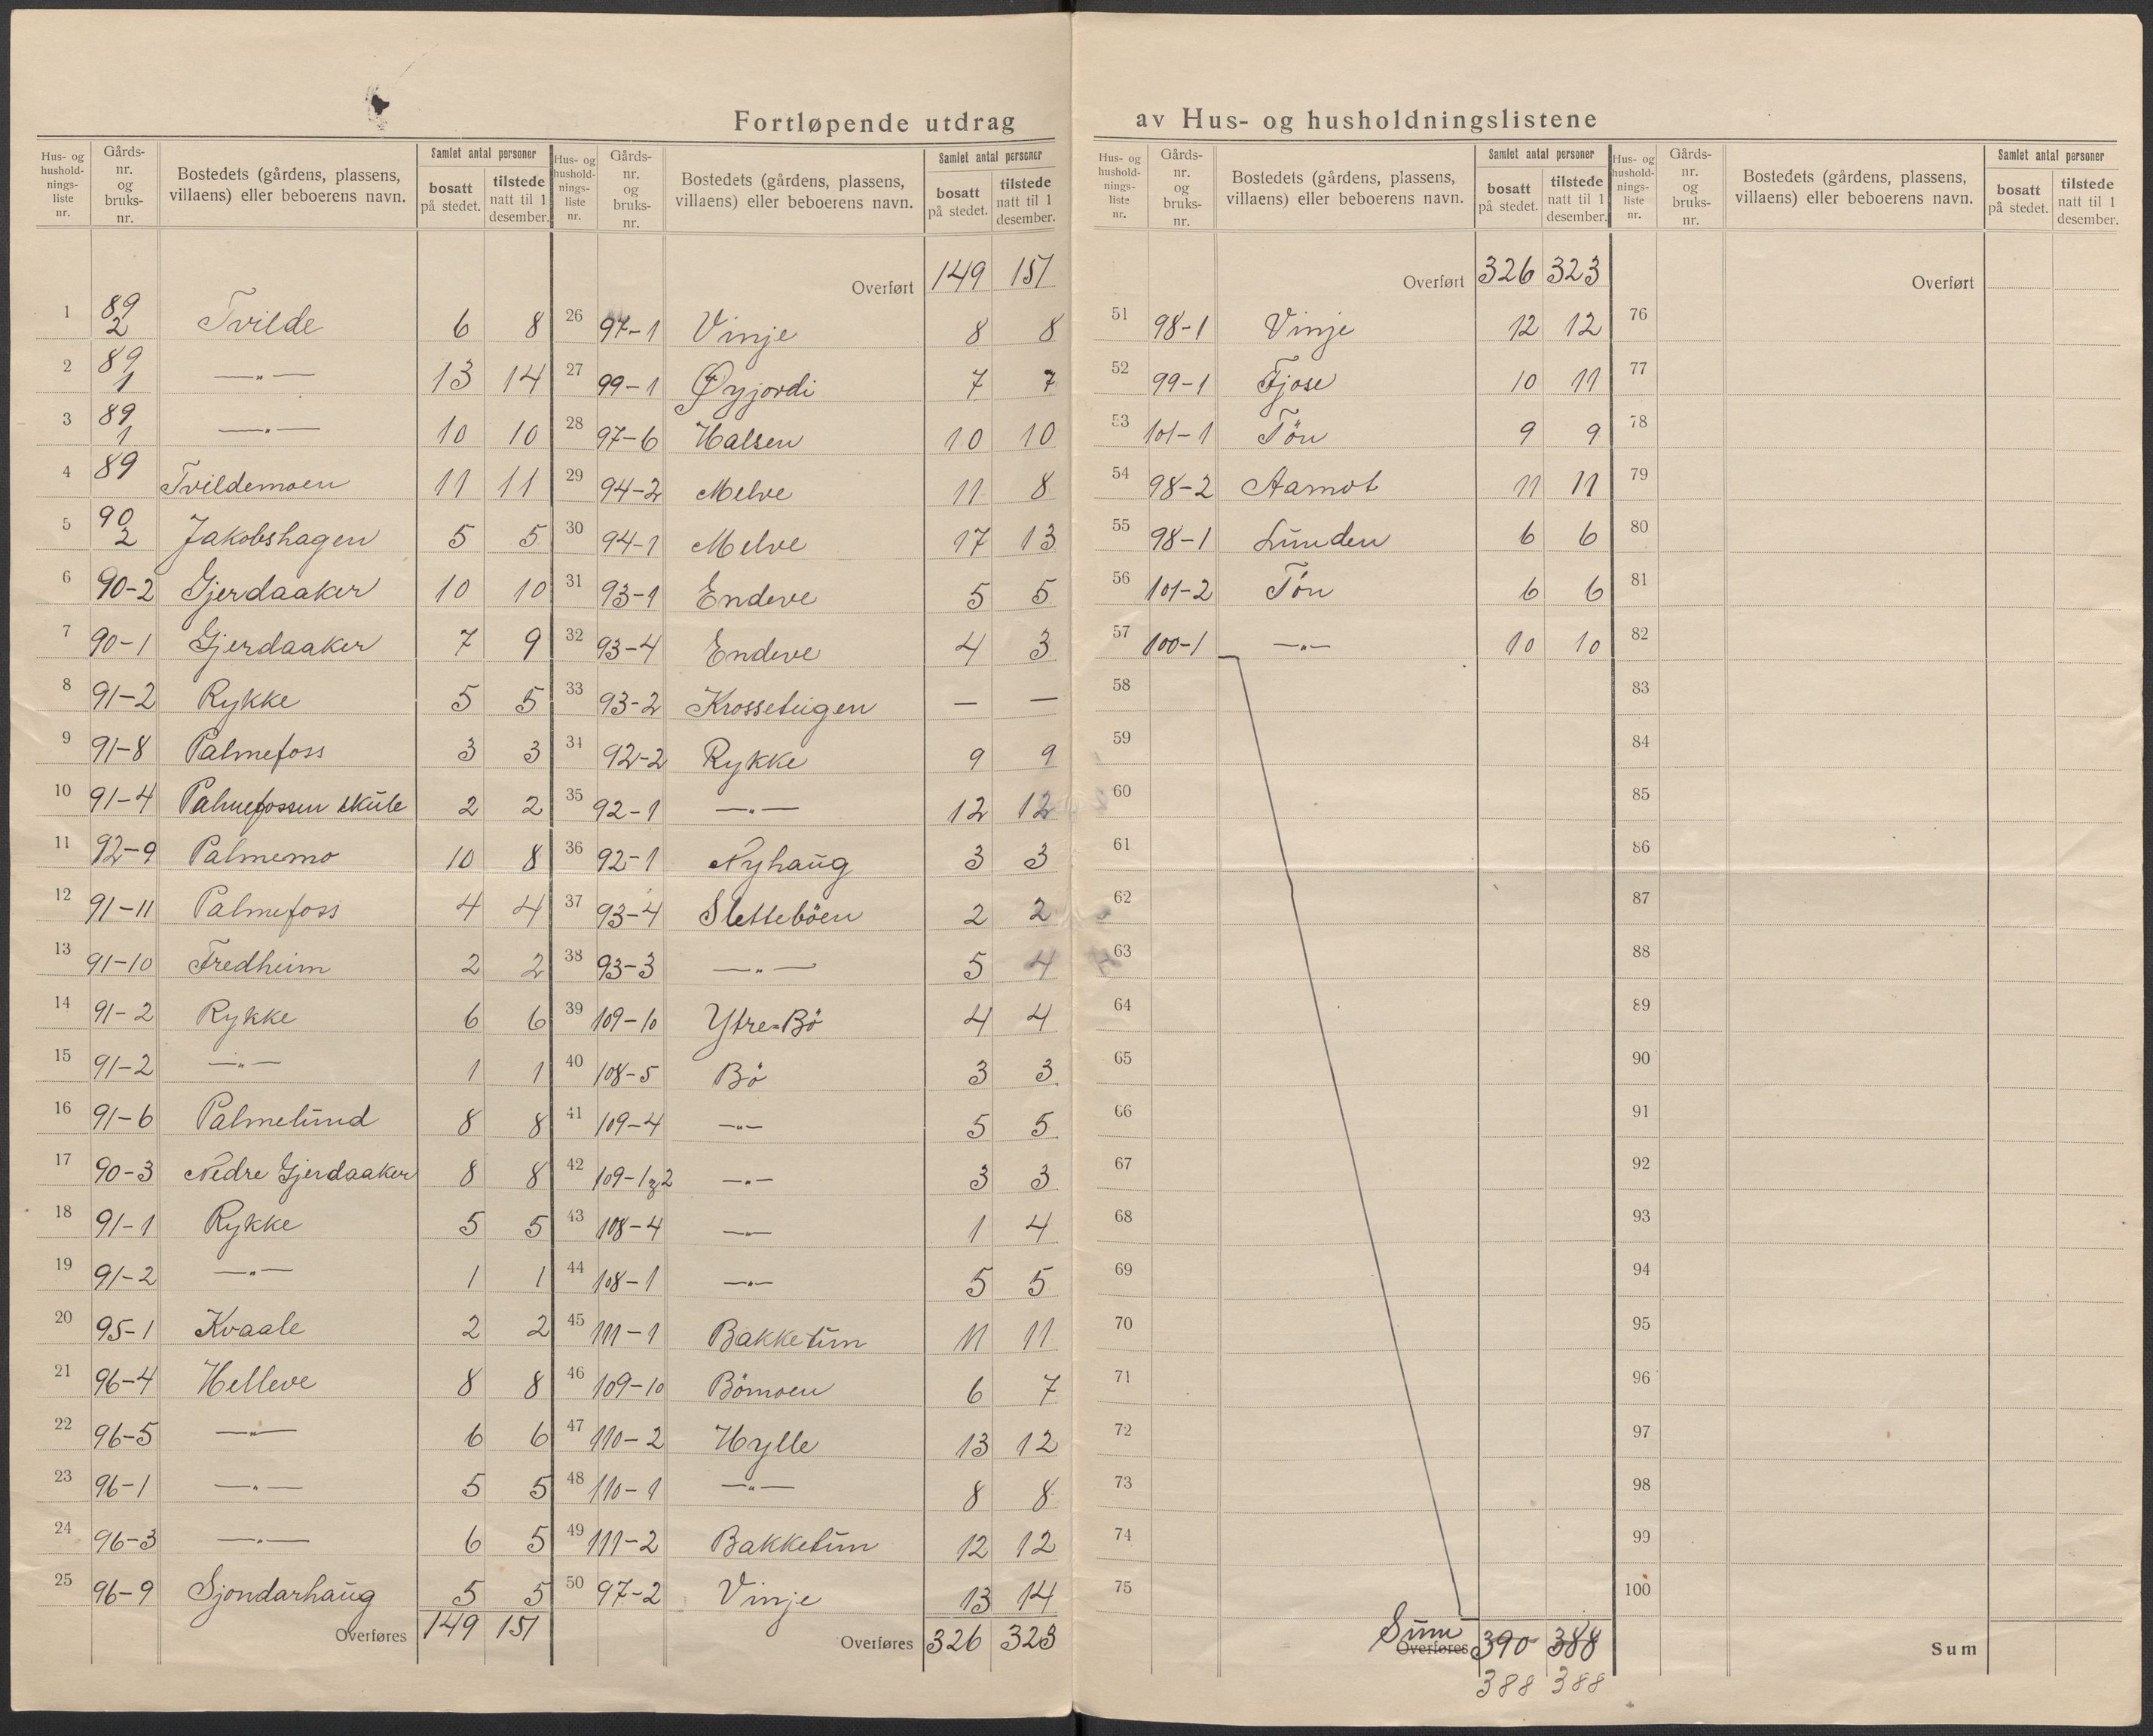 Fortløpende utdrag av Hus- og husholdningslistene
Hus- og hushold- nings- liste nr.
Gårds- nr. og bruks- nr.
Bostedets (gårdens, plassens, villaens) eller beboerens navn.
Samlet antal personer
bosatt på stedet.
tilstede natt til 1 desember.
1 89 2 Tvilde 6 8
2 89 1 —„— 13 14
3 89 1 —„— 10 10
4 89 Tvildemoen 11 11
5 90 2 Jakobshagen 5 5
6 90-2 Gjerdaaker 10 10
7 90-1 Gjerdaaker 7 9
8 91-2 Rykke 5 5
9 91-8 Palmefoss 3 3
10 91-4 Palmefossen skule 2 2
11 92-9 Palmemo 10 8
12 91-11 Palmefoss 4 4
13 91-10 Fredheim 2 2
14 91-2 Rykke 6 6
15 91-2 —„— 1 1
16 91-6 Palmelund 8 8
17 90-3 Nedre Gjerdaaker 8 8
18 91-1 Rykke 5 5
19 91-2 —„— 1 1
20 95-1 Kvaale 2 2
21 96-4 Helleve 8 8
22 96-5 —„— 6 6
23 96-1 —„— 5 5
24 96-3 —„— 6 5
25 96-9 Sjondarhaug 5 5
Overføres 149 151
Hus- og hushold- nings- liste nr.
Gårds- nr. og bruks- nr.
Bostedets (gårdens, plassens, villaens) eller beboerens navn.
Samlet antal personer
bosatt på stedet.
tilstede natt til 1 desember.
Overført 149 151
26 97-1 Vinje 8 8
27 99-1 Øyjordi 7 7
28 97-6 Halsen 10 10
29 94-2 Melve 11 8
30 94-1 Melve 17 13
31 93-1 Endeve 5 5
32 93-4 Endeve 4 3
33 93-2 Krosseteigen — —
34 92-2 Rykke 9 9
35 92-1 —„— 12 12
36 92-1 Nyhaug 3 3
37 93-4 Sletteböen 2 2
38 93-3 —„— 5 4
39 109-10 Ytre-Bö 4 4
40 108-5 Bö 3 3
41 109-4 —„— 5 5
42 109-1 2 —„— 3 3
43 108-4 —„— 1 4
44 108-1 —„— 5 5
45 111-1 Bakketun 11 11
46 109-10 Bömoen 6 7
47 110-2 Hylle 13 12
48 110-1 —„— 8 8
49 111-2 Bakketun 12 12
50 97-2 Vinje 13 14
Overføres 326 323
Hus- og hushold- nings- liste nr.
Gårds- nr. og bruks- nr.
Bostedets (gårdens, plassens, villaens) eller beboerens navn.
Samlet antal personer
bosatt på stedet.
tilstede natt til 1 desember.
Overført 326 323
51 98-1 Vinje 12 12
52 99-1 Fjose 10 11
53 101-1 Tön 9 9
54 98-2 Aamot 11 11
55 98-1 Lunden 6 6
56 101-2 Tön 6 6
57 100-1 —„— 10 10
58
59
60
61
62
63
64
65
66
67
68
69
70
71
72
73
74
75
Sum
Overføres 390 388
388 388
Hus- og hushold- nings- liste nr.
Gårds- nr. og bruks- nr.
Bostedets (gårdens, plassens, villaens) eller beboerens navn.
Samlet antal personer
bosatt på stedet.
tilstede natt til 1 desember.
Overført
76
77
78
79
80
81
82
83
84
85
86
87
88
89
90
91
92
93
94
95
96
97
98
99
100
Sum